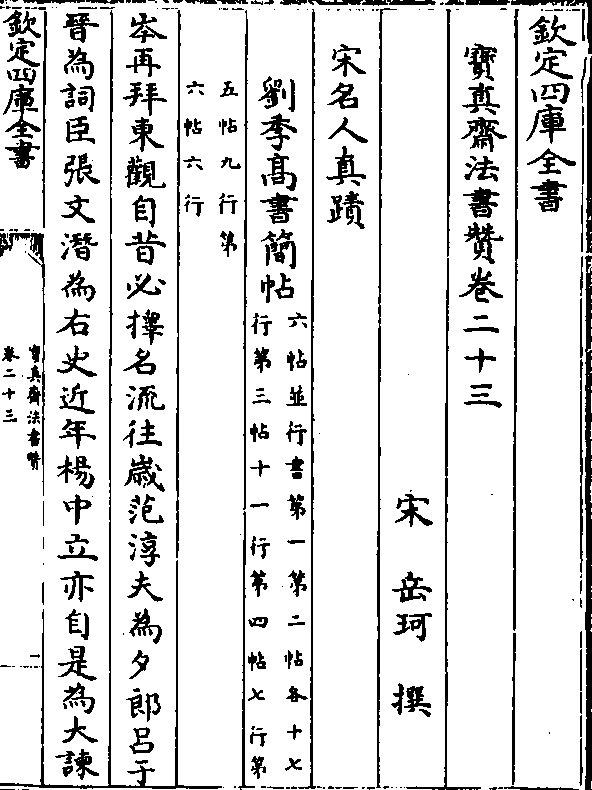 欽定四庫全書
寶真齋法書贊卷二十三
宋 岳珂 撰
宋名人真蹟
劉季髙書簡帖
六帖並行書第一第二帖各十七
行第三帖十一行第四帖七行第
五帖九行第
六帖六行
岑再拜東觀自昔必擇名流往嵗范淳夫為夕郎吕于
晉為詞臣張文潛為右史近年楊中立亦自是為大諫
欽定四庫全書
寶真齋法書贊
卷二十三
一